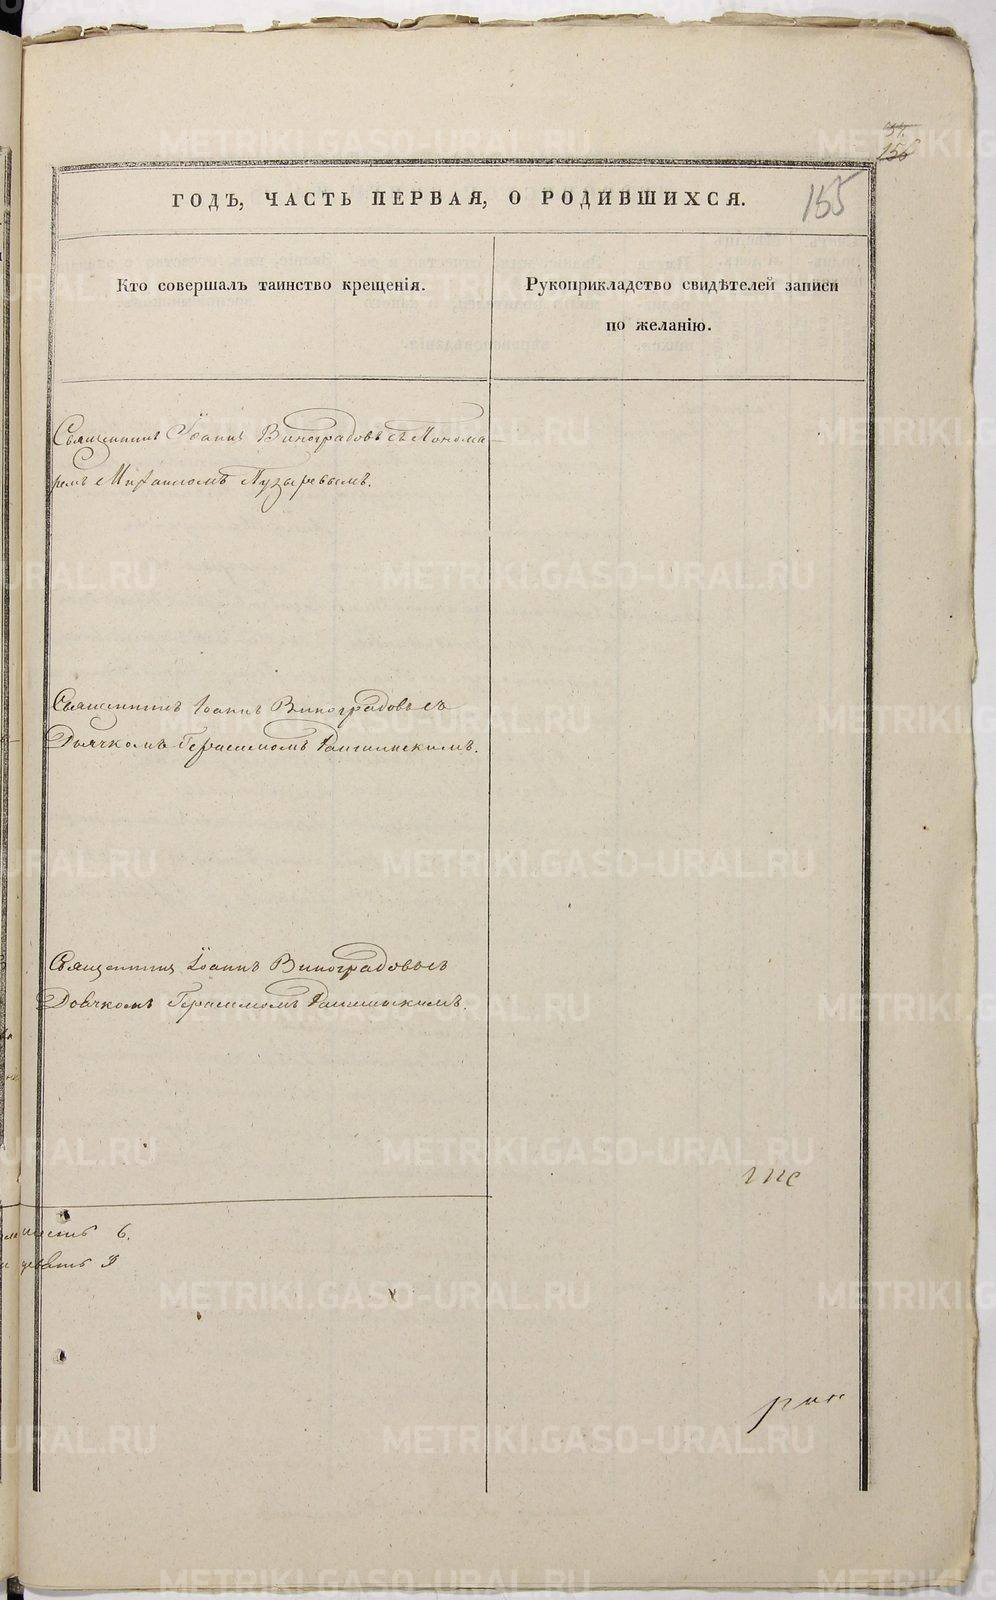 37.
156
155
ГОДЪ, ЧАСТЬ ПЕРВАЯ, О РОДИВШИХСЯ.
Кто совершалъ таинство крещенія.
Рукоприкладство свидѣтелей записи
по желанію.
Священникъ Іоаннъ Виноградовъ съ Понома-
ремъ Михаиломъ Пузыревымъ.
Священникъ Іоаннъ Виноградовъ съ
Дьячкомъ Герасимомъ
Священникъ Іоаннъ Виноградовъ съ
Дьячкомъ Герасимомъ
6.
METRIKI.GASO-URAL.RU